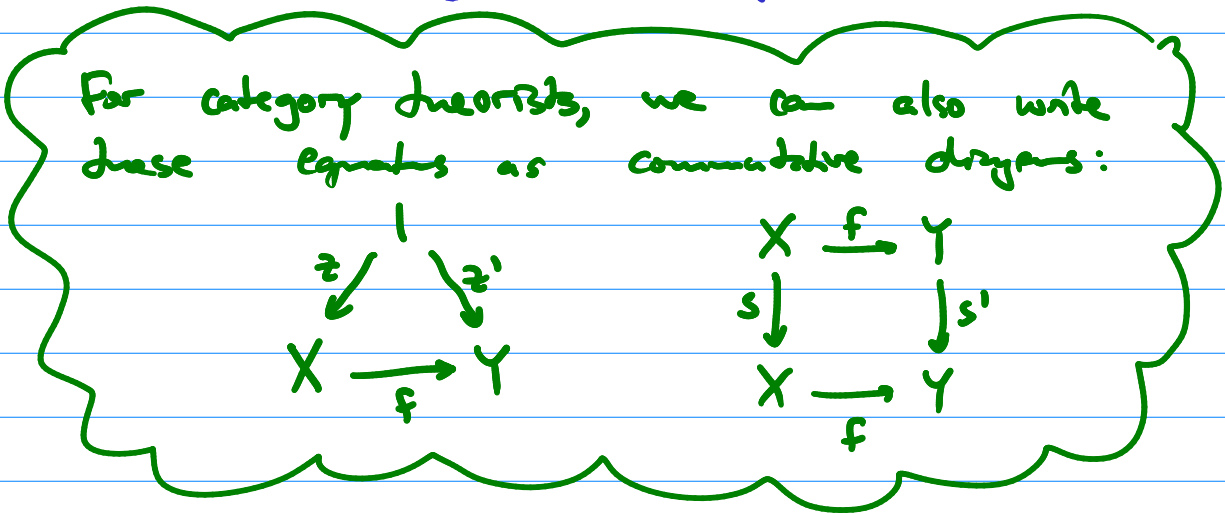 For category theorists, we can also write
these equations as commutative diagrams:
1
z z'
X Y
f
X f Y
s s'
X Y
f